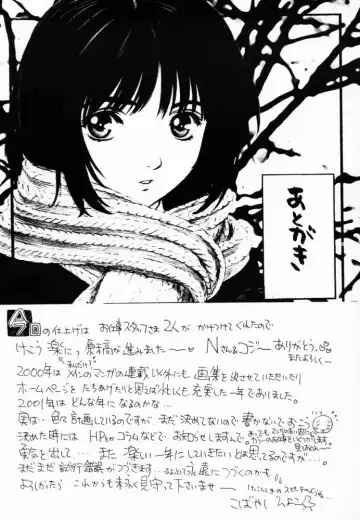 あとがき
今回の仕上げは お仕事スタッフさま2人が かけつけてくれたので
けっこう楽に 原稿が進みましたーー。 Nさん&コジー ありがとう。
私だけ?
またよろしくー
2000年は メインのマンガの連載以外にも 画集を出させていただいたり
ホームページを たちあげたりと 思えば忙しくも充実した一年でありました。
2001年は どんな年になるのかな…
実は… 色々計画しているのですが まだ決めてないので 書かないでおこう
決めた時には HPのコラムなどで お知らせしますんで。
勇気を出して… また 楽しい一年にしていきたいとは思ってるのですが…。
まだまだ 試行錯誤がつづきます… 永遠につづくのかも
よろしかったら これからも 末永く見守って下さいませー
こばやしひよこ